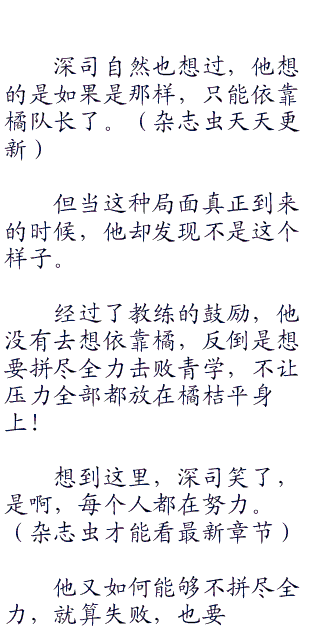 深司自然也想过，他想
的是如果是那样，只能依靠
橘队长了。（杂志虫天天更
新）
但当这种局面真正到来
的时候，他却发现不是这个
样子。
经过了教练的鼓励，他
没有去想依靠橘，反倒是想
要拼尽全力去击败青学，不让
压力全部都放在橘桔平身
上！
想到这里，深司笑了，
是啊，每个人都在努力。
（杂志虫才能看最新章节）
他又如何能够不拼尽全
力，就算失败，也要